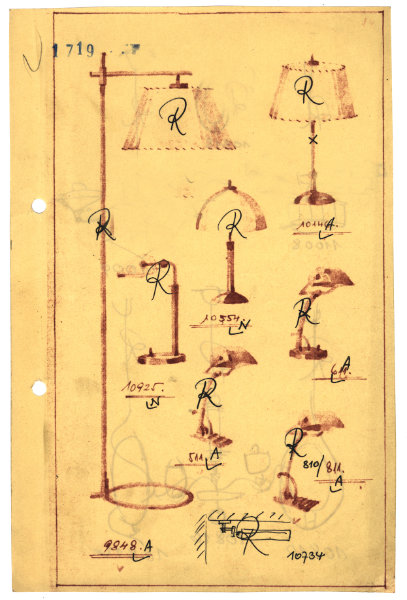 1719
R
R
R
R
R
10144.A
10554
N
R
R
10925.
N
R
A
511.A
R
810/811.
A
9848.A
R
10734